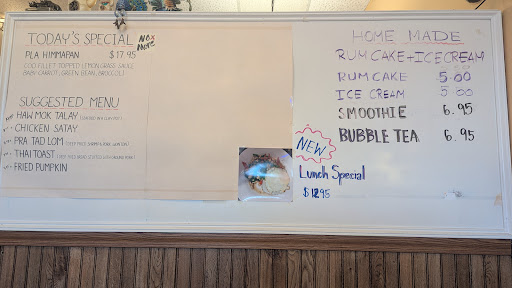 TODAY'S SPECIAL
PLA HIMMAPAN $17.95
COD FILLET TOPPED LEMON GRASS SAUCE
BABY CARROT, GREEN BEAN, BROCCOLI
SUGGESTED MENU
HAW MOK TALAY
CHICKEN SATAY
PRA TAD LOM
THAI TOAST
FRIED PUMPKIN
HOME MADE
RUM CAKE + ICE CREAM
RUM CAKE 5.00
ICE CREAM 5.00
SMOOTHIE 6.95
BUBBLE TEA 6.95
NEW
Lunch Special
$12.95